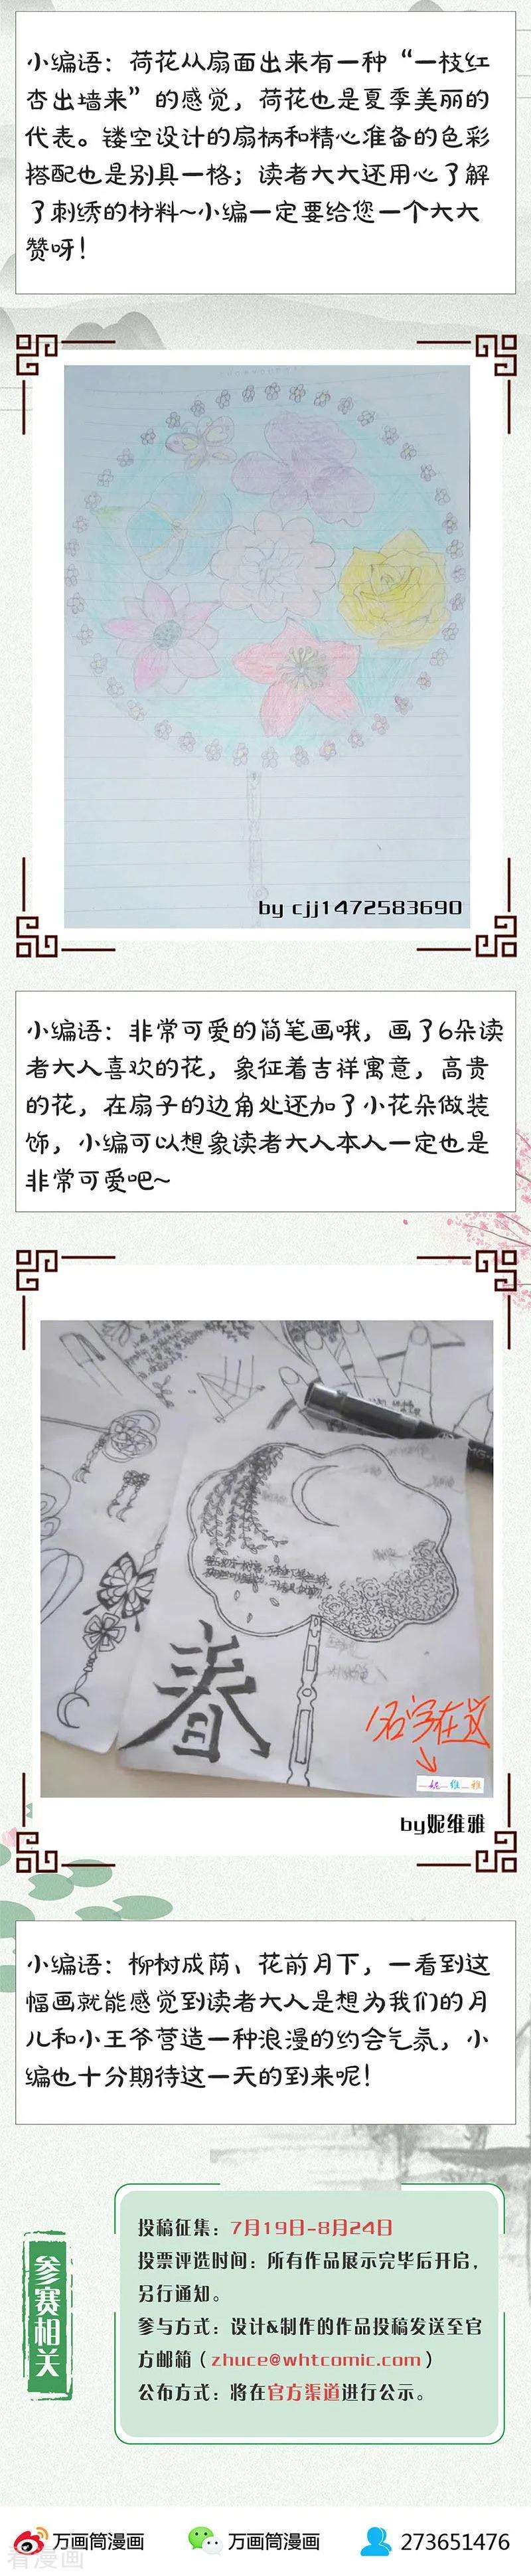 小编语：荷花从扇面出来有一种“一枝红
杏出墙来”的感觉，荷花也是夏季美丽的
代表。镂空设计的扇柄和精心准备的色彩
搭配也是别具一格；读者大大还用心了解
了刺绣的材料~小编一定要给您一个大大
赞呀！
by cjj1472583690
小编语：非常可爱的简笔画哦，画了6朵读
者大人喜欢的花，象征着吉祥寓意，高贵
的花，在扇子的边角处还加了小花朵做装
饰，小编可以想象读者大人本人一定也是
非常可爱吧~
春
名字在这
妮维雅
by妮维雅
小编语：柳树成荫、花前月下，一看到这
幅画就能感觉到读者大人是想为我们的月
儿和小王爷营造一种浪漫的约会气氛，小
编也十分期待这一天的到来呢！
参赛相关
投稿征集：7月19日-8月24日
投票评选时间：所有作品展示完毕后开启，
另行通知。
参与方式：设计&制作的作品投稿发送至官
方邮箱（zhuce@whtcomic.com）
公布方式：将在官方渠道进行公示。
万画筒漫画
万画筒漫画
273651476
看漫画